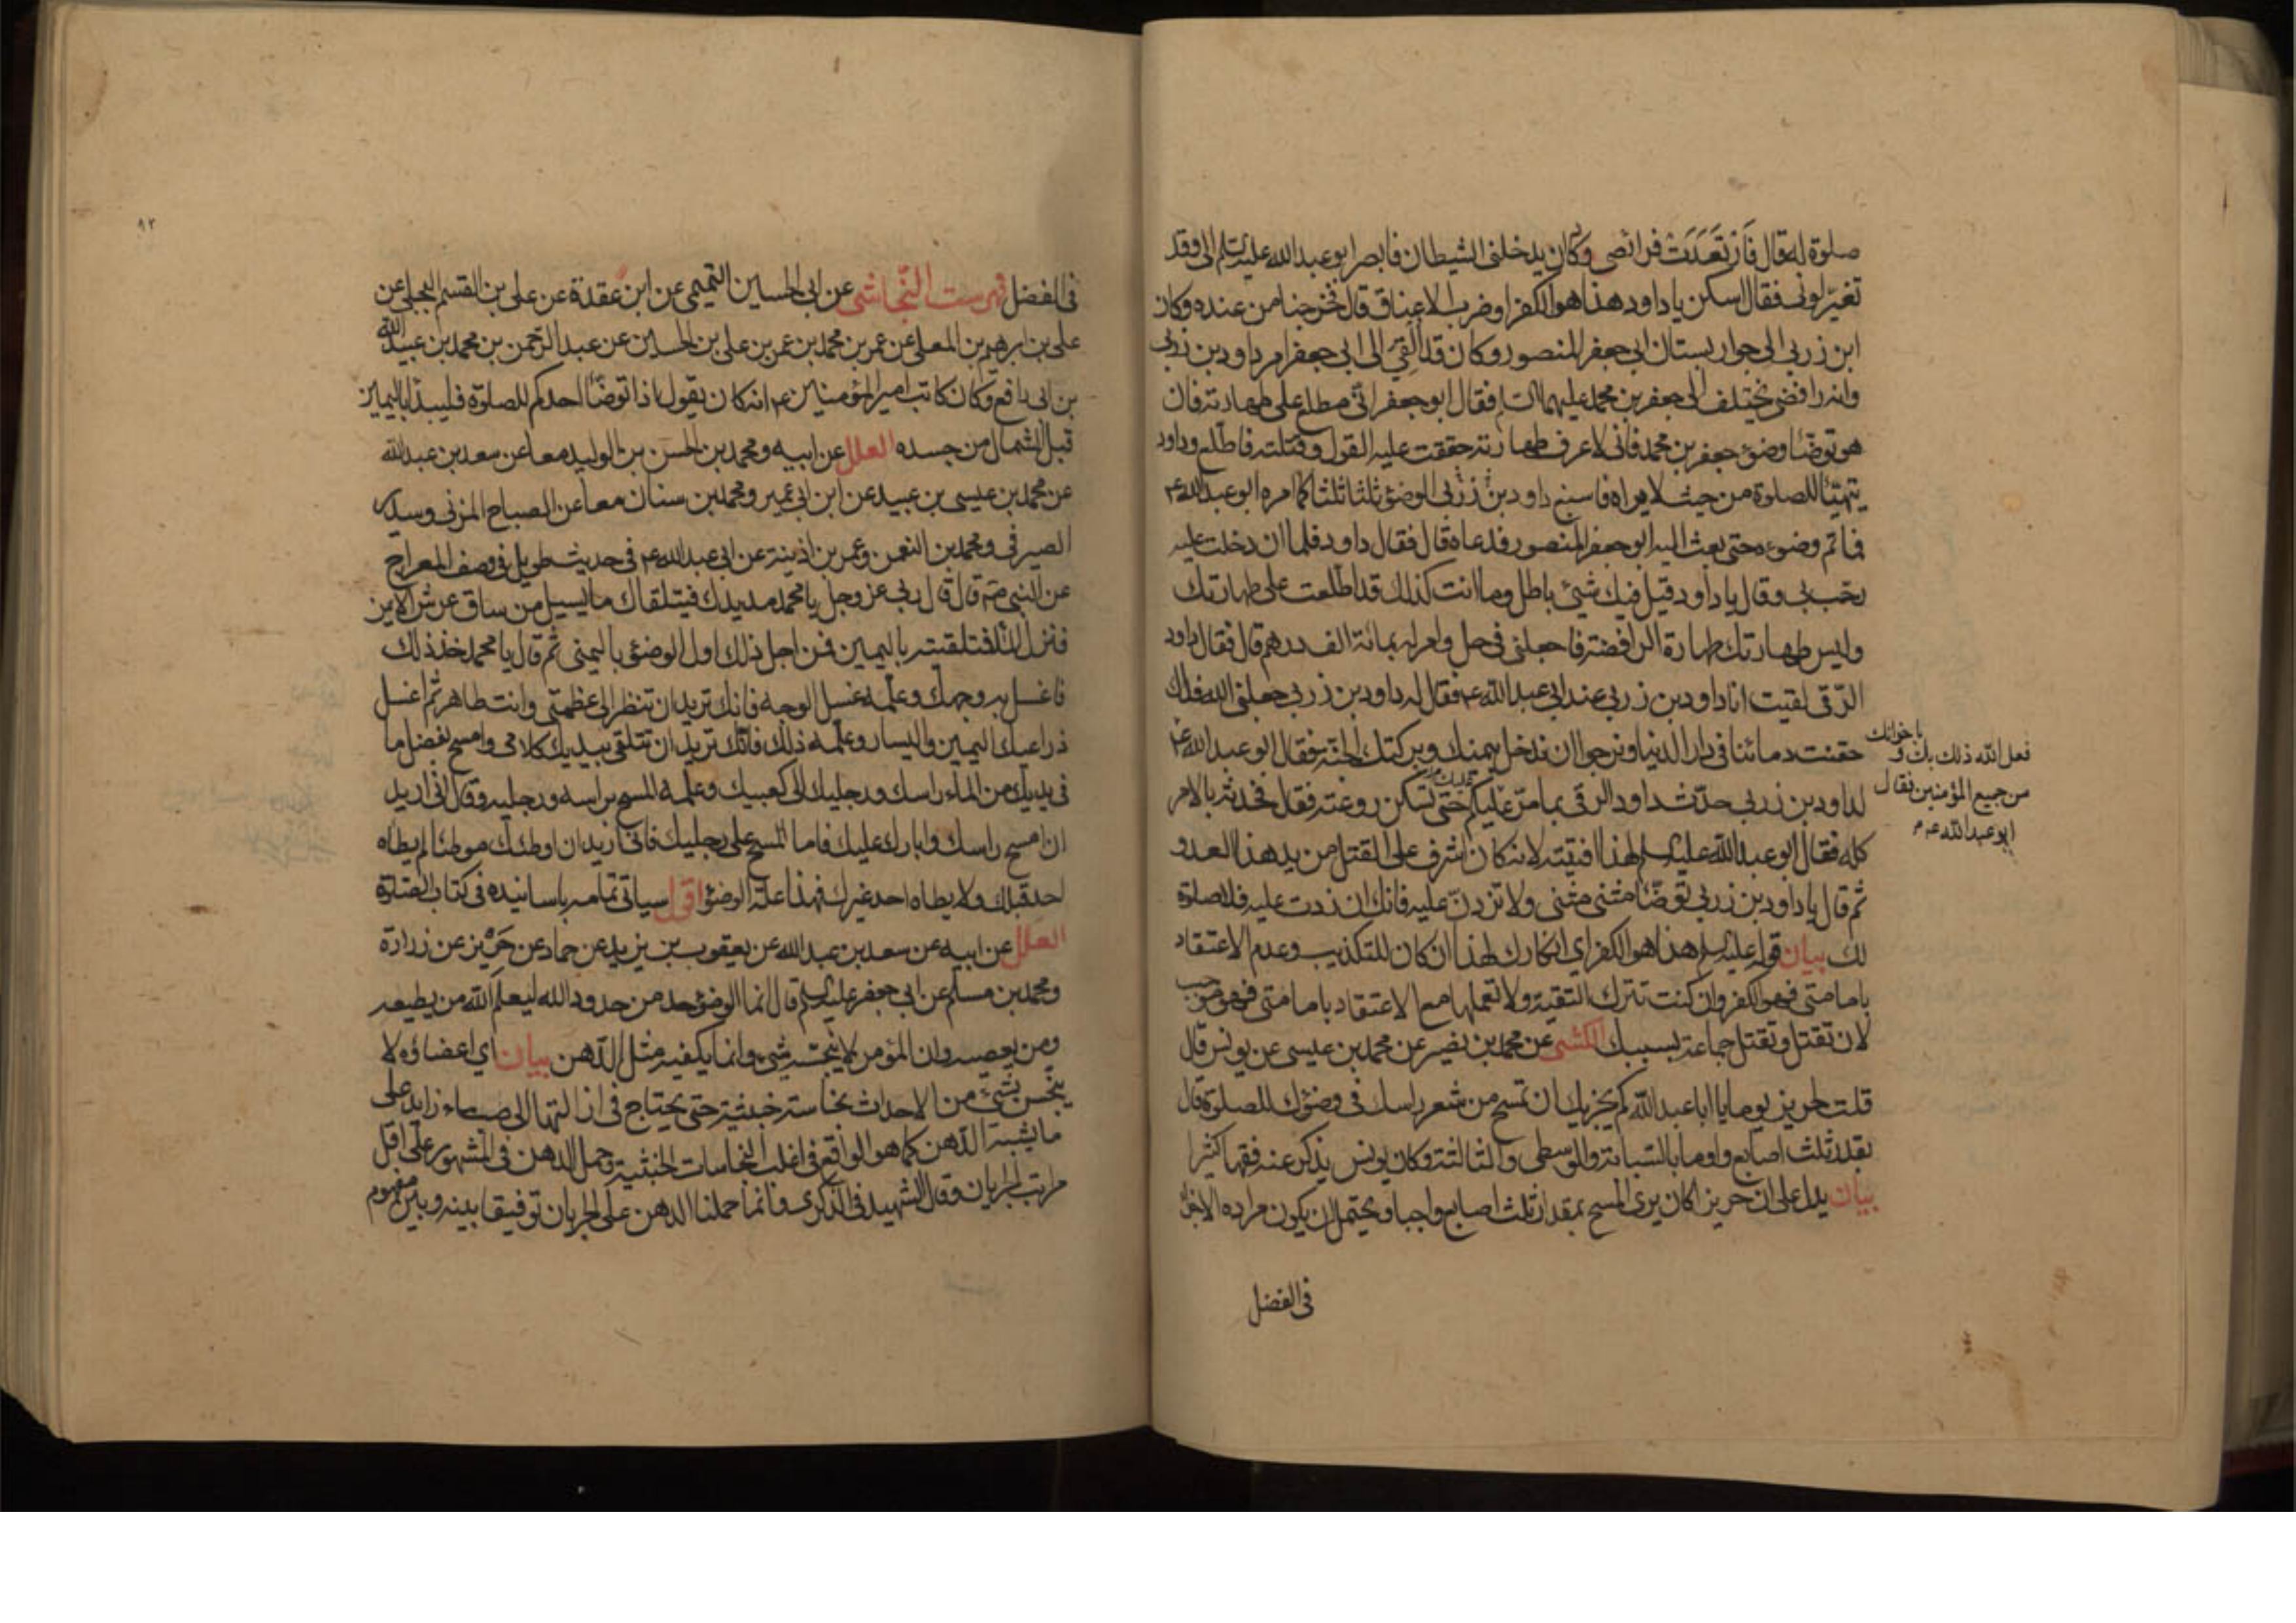 صلوة له قال فَارْتَعَدَتْ فرائصى وكان يدخلنى الشيطان فابصر ابو عبد الله عليه السلم الى وقد
تغيّر لونى فقال اسكن يا داود هذا هو الكفر او ضرب الاعناق قال فخرجنا من عنده وكان
ابن زربى الى جوار بستان ابى جعفر المنصور وكان قد اُلقِىَ الى ابى جعفر امر داود بن زربى
وانه رافضى يختلف الى جعفر بن محمد عليهما السلم فقال ابو جعفر انّى مطلع على طهارته فان
هو توضّا وضوء جعفر بن محمد فانى لاعرف طهارته حققت عليه القول وقتلته فاطّلع وداود
يتهيّا للصلوة من حيث لا يراه فاسبغ داود بن زربى الوضوء ثلثا ثلثا كما امره ابو عبد الله ع
فما تم وضوءه حتى بعث اليه ابو جعفر المنصور فدعاه قال فقال داود فلما ان دخلت عليه
رحّب بى وقال يا داود قيل فيك شئ باطل وما انت كذلك قد اطّلعت على طهارتك
وليس طهارتك طهارة الرافضة فاجعلنى فى حل وامر له بمائة الف درهم قال فقال داود
الرّقى لقيت انا داود بن زربى عند ابى عبد الله ع فقال له داود بن زربى جعلنى الله فداك
حقنت دمائنا فى دار الدنيا ونرجوا ان ندخل بيمنك وبركتك الجنّة فقال ابو عبد الله ع
فعل الله ذلك بك و
باخوانك
من جميع المؤمنين فقال
ابو عبد الله ع
لداود بن زربى حدّث داود الرقى بما مرّ عليكم حتى تسكن روعته فقال فحدثه بالامر
كله فقال ابو عبد الله عليه السلم لهذا افتيته لانه كان اشرف على القتل من يد هذا العدو
ثم قال يا داود بن زربى توضّا مثنى مثنى ولا تزدنّ عليه فانك ان زدت عليه فلا صلوة
لك بيان قوله عليه السلم هذا هو الكفر اى انكارك لهذا ان كان للتكذيب وعدم الاعتقاد
بامامتى فهو الكفر وان كنت تترك التقية ولا تعملها مع الاعتقاد بامامتى فهو موجب
لان تقتل وتقتل جماعة بسببك الكشى عن محمد بن نصير عن محمد بن عيسى عن يونس قال
قلت لحريز يوما يا ابا عبد الله كم يجزيك ان تمسح من شعر راسك فى وضوئك للصلوة قال
بقدر ثلث اصابع واوما بالسّبابة والوسطى والثالثة وكان يونس يذكر عنه فقها كثيرا
بيان يدل على ان حريز كان يرى المسح بمقدار ثلث اصابع واجبا ويحتمل ان يكون مراده الاجزاء
فى الفضل
٩٢
فى الفضل فهرست النّجاشى عن ابى الحسين التميمى عن ابن عقدة عن على بن القسم البجلى عن
على بن ابرهيم بن المعلى عن عمر بن محمد بن عمر بن على بن الحسين عن عبد الرحمن بن محمد بن عبيد الله
بن ابى رافع وكان كاتب امير المؤمنين ع انه كان يقول اذا توضّا احدكم للصلوة فليبدا باليمين
قبل الشمال من جسده العلل عن ابيه ومحمد بن الحسن بن الوليد معا عن سعد بن عبد الله
عن محمد بن عيسى بن عبيد عن ابن ابى عمير ومحمد بن سنان معا عن الصباح المزنى وسدير
الصيرفى ومحمد بن النعمن وعمر بن اذينة عن ابى عبد الله ع فى حديث طويل فى وصف المعراج
عن النبى ص قال قال ربى عز وجل يا محمد مد يدك فيتلقاك ما يسيل من ساق عرشى الايمن
فنزل الماء فتلقيته باليمين فمن اجل ذلك اول الوضوء باليمنى ثم قال يا محمد خذ ذلك
فاغسل به وجهك وعلّمه غسل الوجه فانك تريد ان تنظر الى عظمتى وانت طاهر ثم اغسل
ذراعيك اليمين واليسار وعلّمه ذلك فانّك تريد ان تتلقى بيديك كلامى وامسح بفضل ما
فى يديك من الماء راسك ورجليك الى كعبيك وعلّمه المسح براسه ورجليه وقال انّى اريد
ان امسح راسك وابارك عليك فاما المسح على رجليك فانى اريد ان اوطئك موطئا لم يطاه
احد قبلك ولا يطاه احد غيرك فهذا علة الوضوء اقول سياتى تمامه باسانيده فى كتاب الصّلوة
العلل عن ابيه عن سعد بن عبد الله عن يعقوب بن يزيد عن حماد عن حَريز عن زرارة
ومحمد بن مسلم عن ابى جعفر عليه السلم قال انما الوضوء حد من حدود الله ليعلم الله من يطيعه
ومن يعصيه وان المؤمن لا ينجّسه شئ وانما يكفيه مثل الدّهن بيان اى اعضاؤه لا
ينجس بشئ من الاحداث نجاسة خبثية حتى يحتاج فى ازالتها الى صب ماء زايد على
ما يشبه الدّهن كما هو الواقع فى اغلب النجاسات الخبثية وحمل الدهن فى المشهور على اقل
مراتب الجريان وقال الشهيد فى الذكرى وانما حملنا الدهن على الجريان توفيقا بينه وبين مفهوم